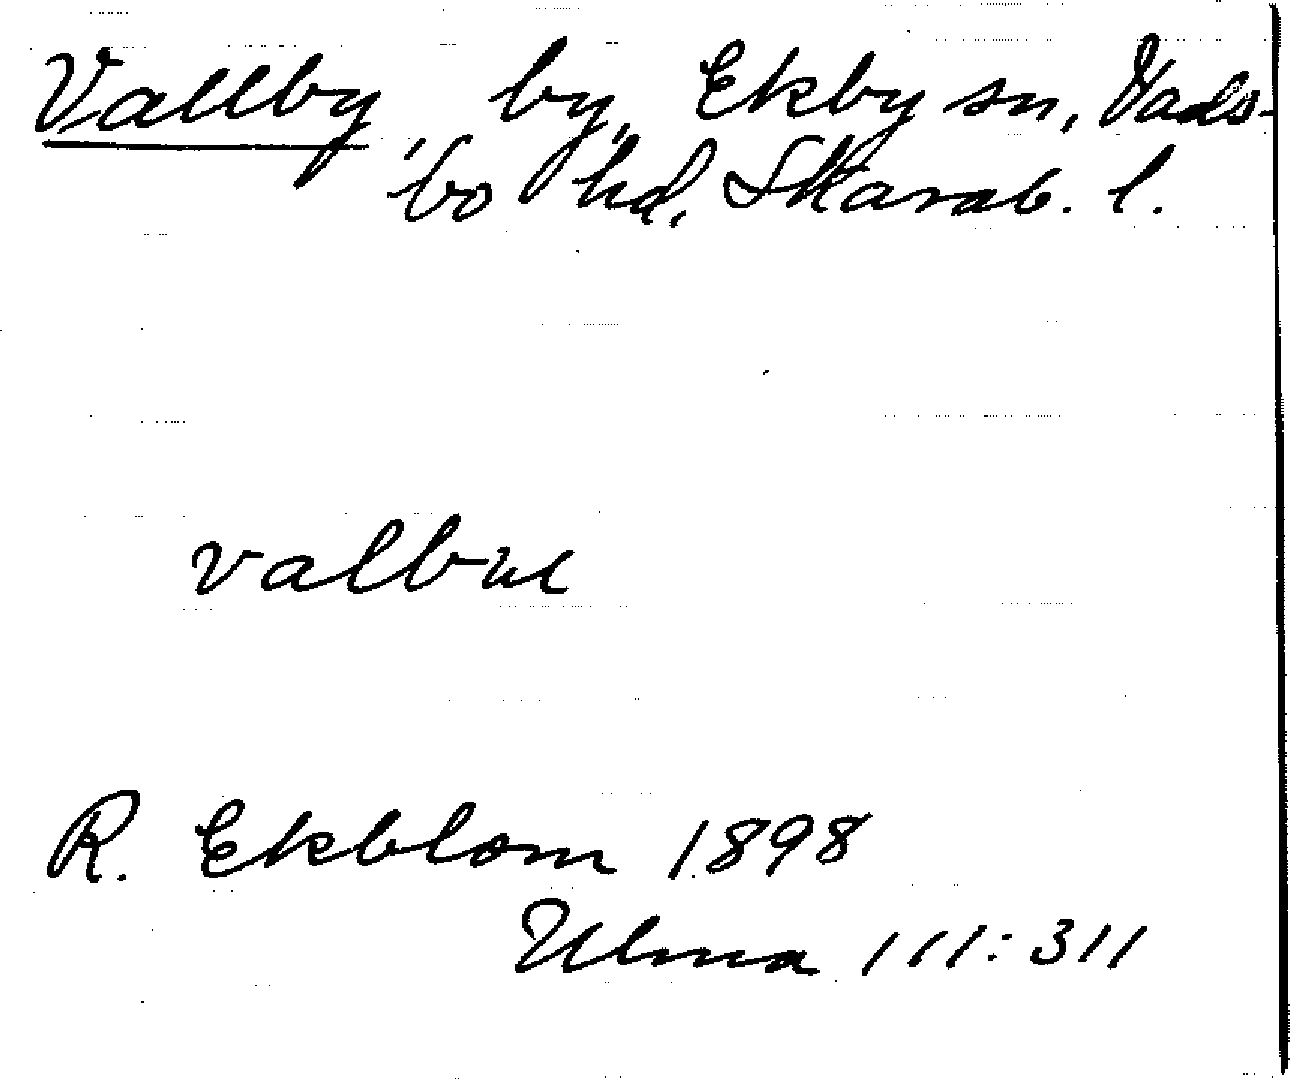 Vallby, by, Ekby sn, Vads-
bo hd, Skarab. l.
valbu
R. Ekblom 1898
Ulma 111:311